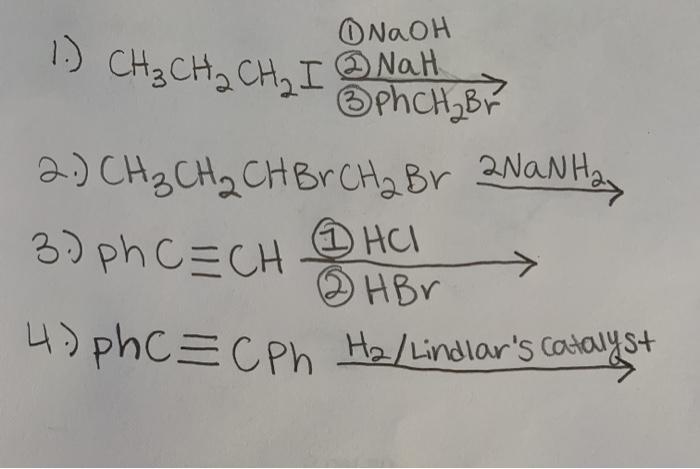 ①NaOH
1.) CH₃CH₂CH₂I ②NaH
③phCH₂Br
2.) CH₃CH₂CHBrCH₂Br 2NaNH₂
3.) phC≡CH ①HCl
②HBr
4.) phC≡CPh H₂/Lindlar's catalyst